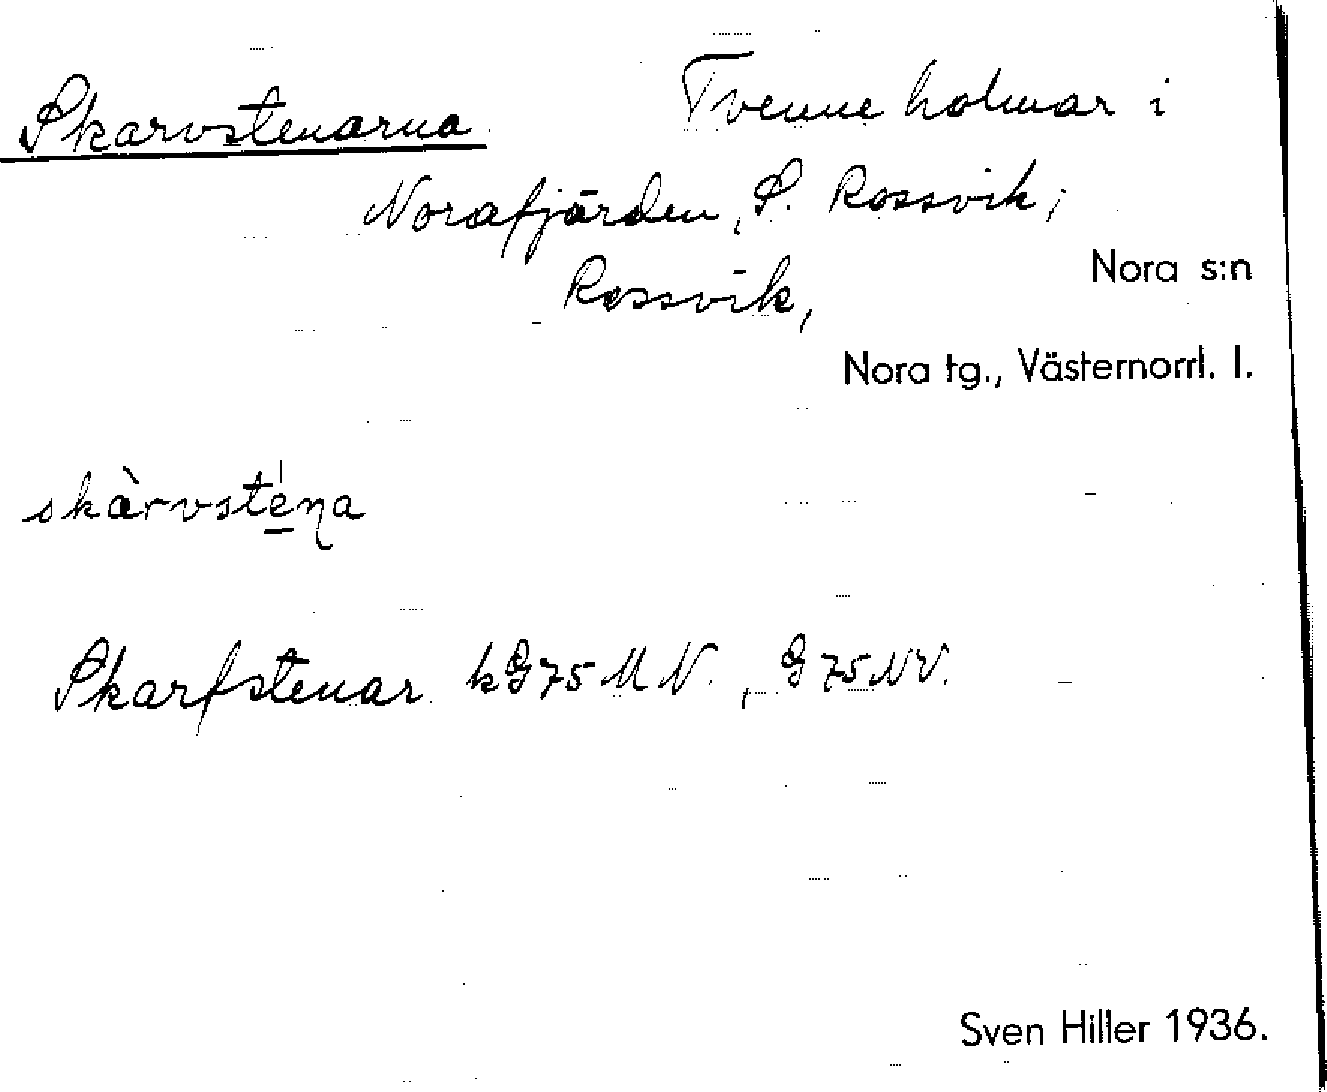 Skarvstenarna Tvenne holmar i
Norafjärden, S. Rossvik;
Rossvik,
Nora s:n
Nora tg., Västernorrl. l.
skàrvsténa
Skarfstenar kG75MN., G75NV.
Sven Hiller 1936.